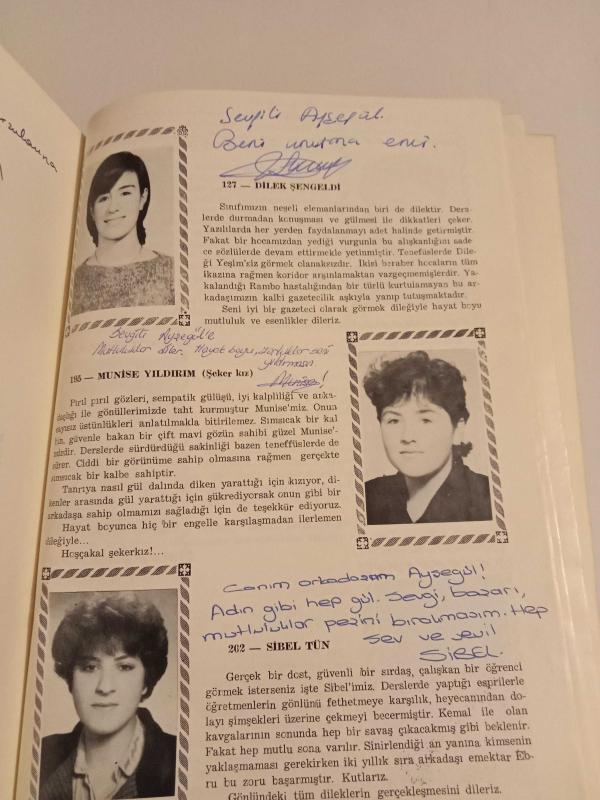 Sevgili Ayşegül.
Beni unutma emi.
127 — DİLEK ŞENGELDİ
Sınıfımızın neşeli elemanlarından biri de dilektir. Ders-
lerde durmadan konuşması ve gülmesi ile dikkatleri çeker.
Yazılılarda her yerden faydalanmayı adet halinde getirmiştir.
Fakat bir hocamızdan yediği vurgunla bu alışkanlığını sade-
ce sözlülerde devam ettirmekle yetinmiştir. Tenefüslerde Dile-
ği Yeşim'siz görmek olanaksızdır. İkisi beraber hocaların tüm
ikazına rağmen koridor arşınlamaktan vazgeçmemişlerdir. Ya-
kalandığı Rambo hastalığından bir türlü kurtulamayan bu ar-
kadaşımızın kalbi gazetecilik aşkıyla yanıp tutuşmaktadır.
Seni iyi bir gazeteci olarak görmek dileğiyle hayat boyu
mutluluk ve esenlikler dileriz.
Sevgili Ayşegül'e
Mutluluklar diler. Hayat boyu, zorluklar seni
yıkmasın.
Munise!
195 — MUNİSE YILDIRIM (Şeker kız)
Pırıl pırıl gözleri, sempatik gülüşü, iyi kalpliliği ve arka-
daşlığı ile gönüllerimizde taht kurmuştur Munise'miz. Onun
sayısız üstünlükleri anlatılmakla bitirilemez. Sımsıcak bir kal
bin, güvenle bakan bir çift mavi gözün sahibi güzel Munise'-
mizdir. Derslerde sürdürdüğü sakinliği bazen teneffüslerde de
sürer. Ciddi bir görünüme sahip olmasına rağmen gerçekte
sımsıcak bir kalbe sahiptir.
Tanrıya nasıl gül dalında diken yarattığı için kızıyor, di-
kenler arasında gül yarattığı için şükrediyorsak onun gibi bir
arkadaşa sahip olmamızı sağladığı için de teşekkür ediyoruz.
Hayat boyunca hiç bir engelle karşılaşmadan ilerlemen
dileğiyle...
Hoşçakal şekerkız!...
Canım arkadaşım Ayşegül!
Adın gibi hep gül. Sevgi, başarı,
mutluluklar peşini bırakmasın. Hep
sev ve sevil
SİBEL.
202 — SİBEL TÜN
Gerçek bir dost, güvenli bir sırdaş, çalışkan bir öğrenci
görmek isterseniz işte Sibel'imiz. Derslerde yaptığı esprilerle
öğretmenlerin gönlünü fethetmeye karşılık, heyecanından do-
layı şimşekleri üzerine çekmeyi becermiştir. Kemal ile olan
kavgalarının sonunda hep bir savaş çıkacakmış gibi beklenir.
Fakat hep mutlu sona varılır. Sinirlendiği an yanına kimsenin
yaklaşmaması gerekirken iki yıllık sıra arkadaşı emektar Eb-
ru bu zoru başarmıştır. Kutlarız.
Gönlündeki tüm dileklerin gerçekleşmesini dileriz.